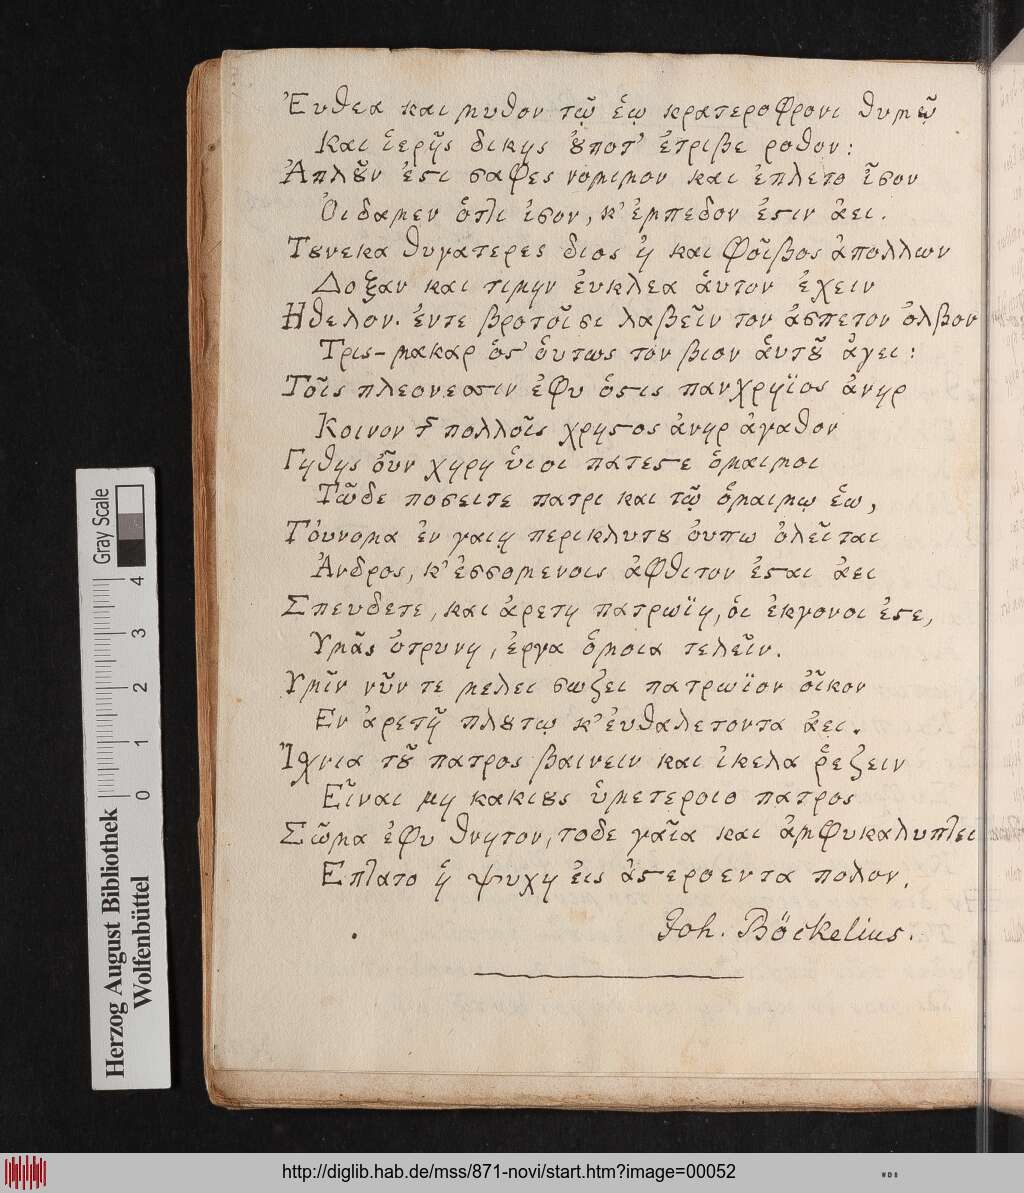 Ἐυθεα και μυθον τῷ ἑῳ κρατεροφρονι θυμῷ
Και ἱερῆς δικης ȣ̓ποτ' ἐτριβε ροθον:
Ἁπλȣ͂ν ἐϛι σαφες νομιμον και ἐπλετο ἶσον
Οἰδαμεν ὁτ̔ι ἰσον, κ' ἐμπεδον ἐϛιν ἀει.
Τȣνεκα θυγατερες διος ἠ και Φοῖβος ἀπολλων
Δοξαν και τιμην ἐυκλεα ἁυτον ἐχειν
Ηθελον. ἐντε βροτοῖσι λαβεῖν τον ἀσπετον ὀλβον
Τρις-μακαρ ὁς' ὁυτως τον βιον ἁυτȣ͂ ἀγει:
Τοῖς πλεονεσσιν ἐφυ ὁϛις πανχρηϊος ἀνηρ
Κοινον πολλοῖς χρηϛος ἀνηρ ἀγαθον
Γηθης οὖν χηρη ὑιοι πατεϛε ὁμαιμοι
Τῶδε ποσειτε πατρι και τῷ ὁμαιμῳ ἑω,
Τὀυνομα ἐν γαιῃ περικλυτȣ ὀυπω ὀλεῖται
Ἀνδρος, κ' ἐσσομενοις ἀφθιτον ἐϛαι ἀει
Σπευδετε, και ἀρετη πατρωϊη, ὁι ἐκγονοι ἐϛε,
Υμᾶς ὀτρυνη, ἐργα ὁμοια τελεῖν.
Υμῖν νῦν τε μελει σωζει πατρωϊον οἶκον
Εν ἀρετῇ πλȣτῳ κ' ἐυθαλετοντα ἀει.
Ἰχνια τȣ͂ πατρος βαινειν και ἰκελα ῥεζειν
Εἶναι μη κακιȣς ὑμετεροιο πατρος
Σῶμα ἐφυ θνητον, τοδε γαῖα και ἀμφυκαλυπτει
Επτατο ἡ ψυχη ἐις ἀϛεροεντα πολον.
Joh. Böckelius.
Herzog August Bibliothek
Wolfenbüttel
0 1 2 3 4
Gray Scale
http://diglib.hab.de/mss/871-novi/start.htm?image=00052
WDB